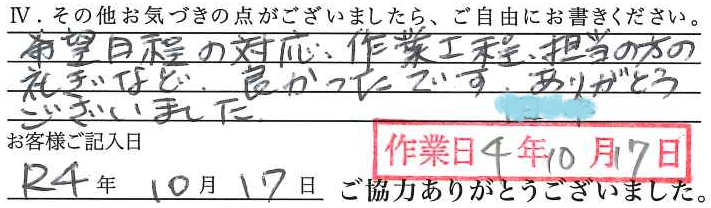 Ⅳ.その他お気づきの点がございましたら、ご自由にお書きください。
希望日程の対応、作業工程、担当の方の
礼ぎなど、良かったです。ありがとう
ございました
お客様ご記入日
作業日4年10月17日
R4年10月17日 ご協力ありがとうございました。